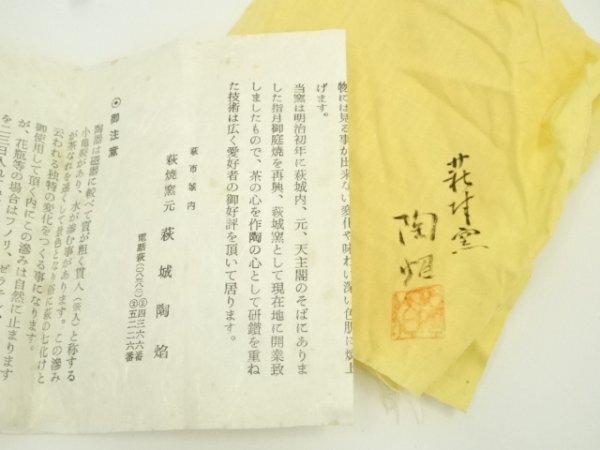 物には見る事が出来ない変化や味わい深い色肌に焼上
げます。
当窯は明治初年に萩城内、元、天主閣のそばにありま
した指月御庭焼を再興、萩城窯として現在地に開業致
しましたもので、茶の心を作陶の心として研鑽を重ね
た技術は広く愛好者の御好評を頂いて居ります。
萩市城内
萩焼窯元 萩城陶焰
電話萩(〇八三八)②四三六六番
②五二二六番
◎御注意
陶器は磁器に較べて質が粗く貫入(嵌入)と称する
小亀裂があり、水が滲む事があります。この滲み
が茶なれを速くして景色となり俗に萩の七化けと
云われる独特の変化をつくる事になります。
御使用して頂く内にこの滲みは自然に止まります
が、花瓶等の場合はフノリ、ゼラチン
を二三日入れ
萩城窯
陶焰